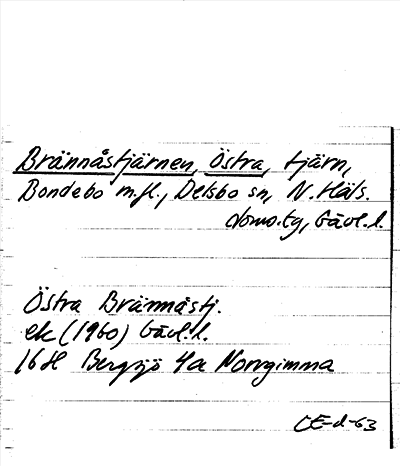 Brännåstjärnen, Östra, tjärn,
Bondebo m.fl., Delsbo sn, N. Häls.
domo.tg, Gävl.l.
Östra Brännåstj.
ek (1960) Gävl.l.
16H Bergsjö 4a Norrgimma
CE-d-63